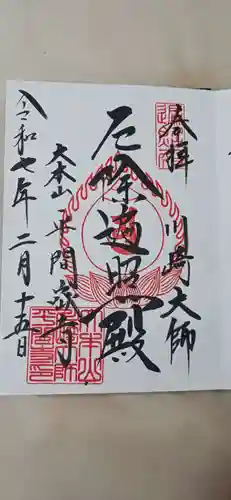 奉拝
川崎大師
厄除遍照殿
大本山
平間寺
令和七年二月十五日